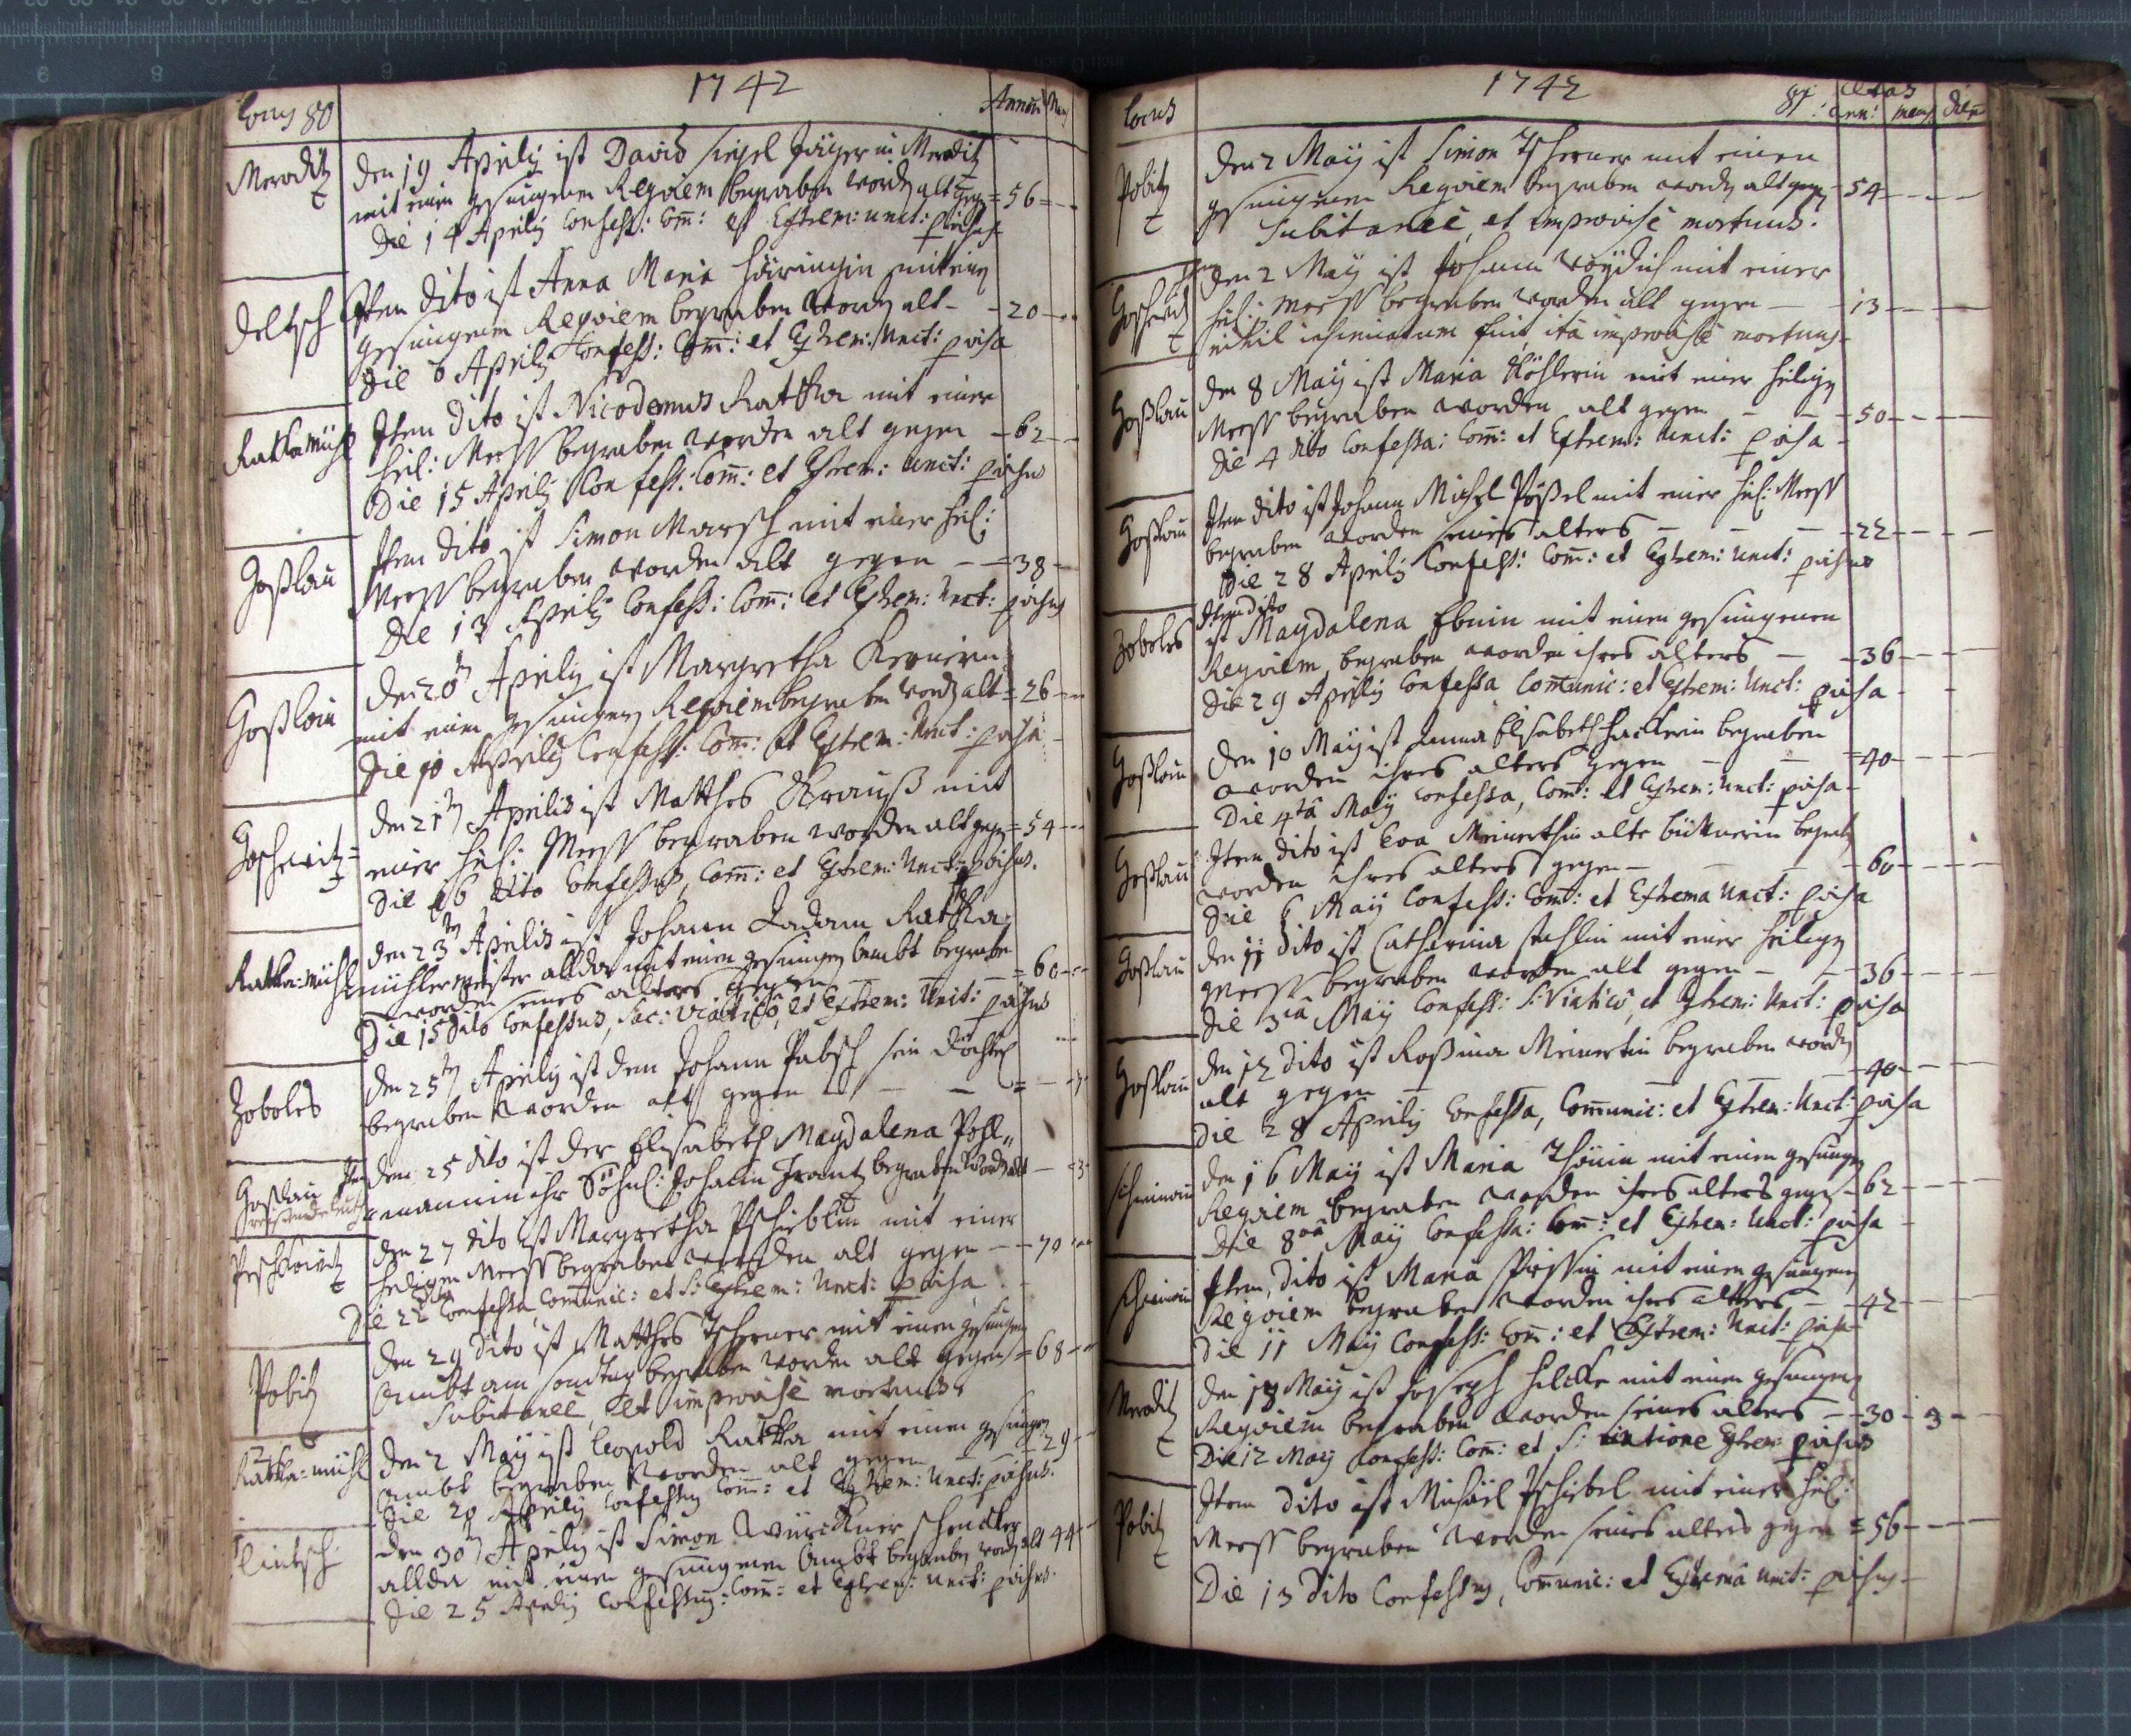 Locus 80 1742 Annor̄ Men
Meraditz den 19 Aprilis ist David Siegel Jäger in Meraditz
mit einen gesungenen Requiem begraben worden alt gegen = 56
Die 14 Aprilis Confess: Com̄: et Extrem: unct: provisus
Deltsch Item dito ist Anna Maria Häringin mit einen
gesungenen Requiem begraben worden alt - 20
Die 8 Aprilis Confess: Com̄: et Extrem: Unct: provisa
Ratka Mühl Item dito ist Nicodemus Ratka mit einer
heil: Mess begraben worden alt gegen - 62
Die 15 Aprilis Confess: Com̄: et Extrem: Unct: provisus
Goßlau Item dito ist Simon Marsch mit einer heil:
Mess begraben worden alt gegen - 38
Die 13 Aprilis Confess: Com̄: et Extrem: Unct: provisus
Goßlau den 20 Aprilis ist Margretha
mit einen gesungen Requiem begraben worden alt = 26
Die 10 Aprilis Confess: Com̄: et Extrem: Unct: provisa
Goschwitz den 21 Aprilis ist Matthes Krauß mit
einer heil: Mess begraben worden alt gegen = 54
Die 16 dito Confessus, Com̄: et Extrem: Unct: provisus.
Ratka-Mühl den 23 Aprilis ist Johann Adam Ratka
mühlermeister allda mit einen gesungen Ambt begraben
worden seines alters gegen = 60
Die 15 dito Confessus, Sac: Viatico, et Extrem: Unct: provisus
Zoboles den 25 Aprilis ist dem Johann Pabsch sein döchterl
begraben worden alt gegen
Goßlau den 25 dito ist der Elisabeth Magdalena Pohl-
mannin ihr Söhnl: Johann Frantz begraben worden alt - 3
den 27 dito ist Margretha mit einer
heiligen Mess begraben worden alt gegen - 70
Die 22 Confessa, Com̄unic: et S: Extrem: Unct: provisa
Pobitz den 29 dito ist Matthes Tscherner mit einen gesungen
Ambt am sontag begraben worden alt gegen = 68
Subitaneè, et improvisè mortuus.
Ratka-mühl den 2 Maij ist Leopold Ratka mit einen gesungen
Ambt begraben worden alt gegen - 29
Die 20 Aprilis Confessus Com̄: et Extrem: Unct: provisus.
den 30 Aprilis ist Simon Würckner schencker
allda mit einen gesungenen Ambt begraben worden alt 44
Die 25 Aprilis Confessus: Com̄: et Extrem: Unct: provisus.
Locus 1742 81 Ætas
ann: mens: dier̄
Pobitz den 2 Maij ist Simon Tscherner mit einen
gesungenen Requiem begraben worden alt gegen - 54
Subitaneè, et improvisè mortuus.
den 2 Maij ist Johann mit einer
heil: Mess begraben worden alt gegen - 13
nihil insinuatum fuit, ità improvisè mortuus
Goßlau den 8 Maij ist Maria Köhlerin mit einer heiligen
Mess begraben worden alt gegen - 50
Die 4 dito Confessa: Com̄: et Extrem: Unct: provisa
Goßlau Item dito ist Johann Michel mit einer heil: Mess
begraben worden seines alters - 22
Die 28 Aprilis Confess: Com̄: et Extrem: Unct: provisus
Zoboles Item dito
ist Magdalena mit einen gesungenen
Requiem begraben worden ihres alters - 36
Die 29 Aprilis Confessa Com̄unic: et Extrem: Unct: provisa
Goßlau den 10 Maij ist Anna Elisabeth Hackerin begraben
worden ihres alters gegen = 40
Die 4tâ Maij Confessa, Com̄: et Extrem: Unct: provisa
Goßlau Item dito ist Eva Meinertin alte begraben
worden ihres alters gegen - 60
Die 6 Maij Confess: Com̄: et Extrema Unct: provisa
Goßlau den 11 dito ist Catharina mit einer heiligen
Mess begraben worden alt gegen - 36
Die 3iâ Maij Confess: S: Viaticô, et Extrem: Unct: provisa
Goßlau den 12 dito ist Rosina Meinertin begraben worden
alt gegen - 40
Die 28 Aprilis Confessa, Com̄unic: et Extrem: Unct: provisa
den 16 Maij ist Maria mit einen gesungen
Requiem begraben worden ihres alters gegen - 62
Die 8vâ Maij Confessa: Com̄: et Extrem: Unct: provisa
Item dito ist Maria mit einen gesungenen
Requiem begraben worden ihres alters - 42
Die 11 Maij Confess: Com̄: et Extrem: Unct: provisa
Meraditz den 18 Maij ist Joseph mit einen gesungen
Requiem begraben worden seines alters - 30 - 3 -
Die 12 Maij Confess: Com̄: et S: unctione Extrem: provisus
Pobitz Item dito ist Michäel mit einer heil:
Mess begraben worden seines alters gegen = 56
Die 13 dito Confessus, Com̄unic: et Extremâ Unct: provisus